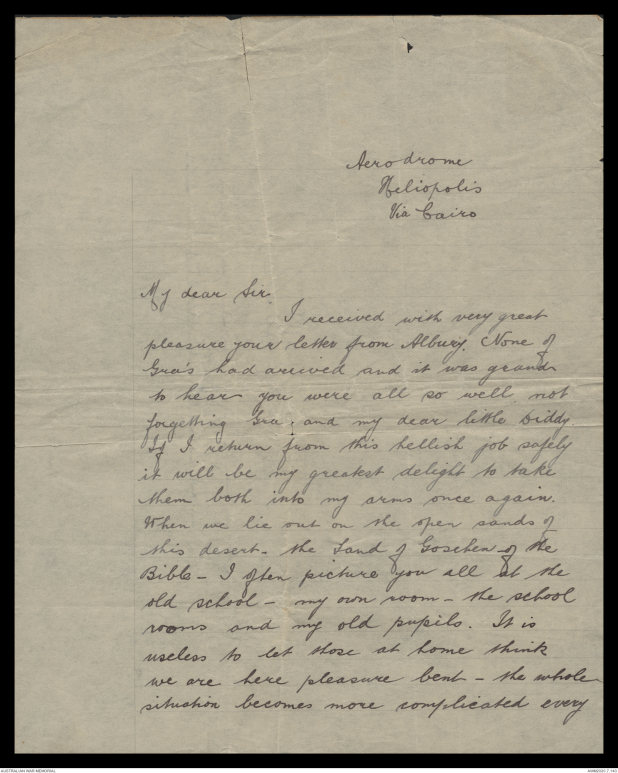 Aerodrome
Heliopolis
Via Cairo
My dear Sir.
I received with very great
pleasure your letter from Albury. None of
Gra's had arrived and it was grand
to hear you were all so well not
forgetting Gra; and my dear little Diddy.
If I return from this hellish job safely
it will be my greatest delight to take
them both into my arms once again.
When we lie out on the open sands of
this desert - the Land of Goschen of the
Bible - I often picture you all at the
old school - my own room - the school
rooms and my old pupils. It is
useless to let those at home think
we are here pleasure bent - the whole
situation becomes more complicated every
AUSTRALIAN WAR MEMORIAL